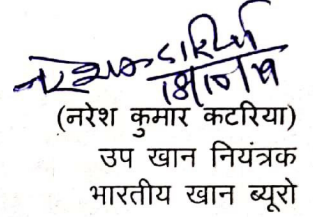 18/10/19
(नरेश कुमार कटरिया)
उप खान नियंत्रक
भारतीय खान ब्यूरो